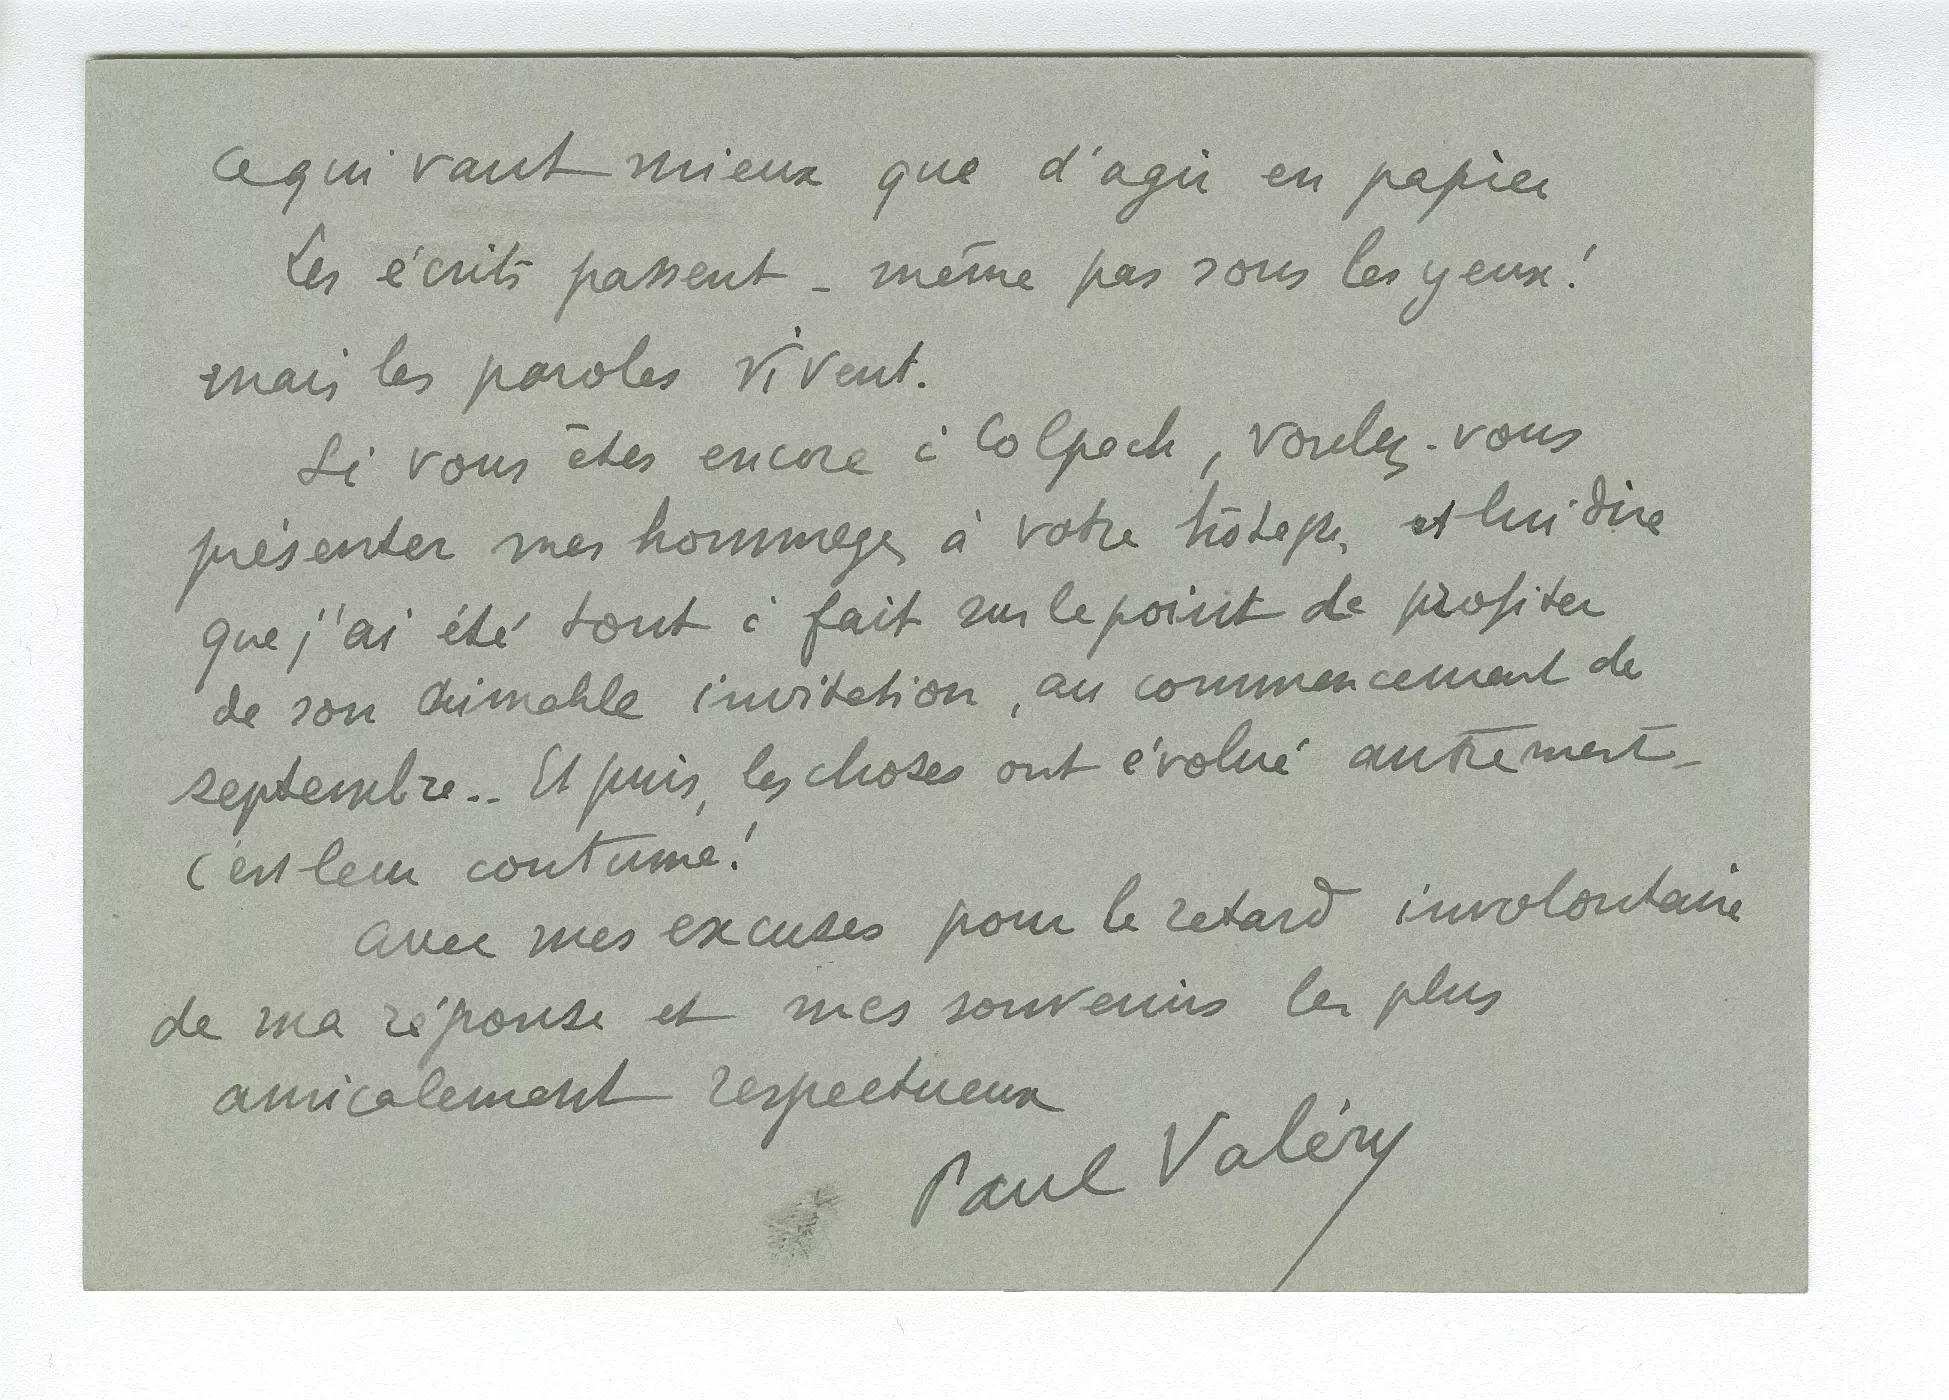 ce qui vaut mieux que d'agir en papier
Les écrits passent - même pas sous les yeux!
mais les paroles vivent.
Si vous êtes encore à Colpach, voulez-vous
présenter mes hommages à votre hôtesse, et lui dire
que j'ai été tout à fait sur le point de profiter
de son aimable invitation, au commencement de
septembre.. Et puis, les choses ont évolué autrement -
c'est leur coutume!
Avec mes excuses pour le retard involontaire
de ma réponse et mes souvenirs les plus
amicalement respectueux
Paul Valéry